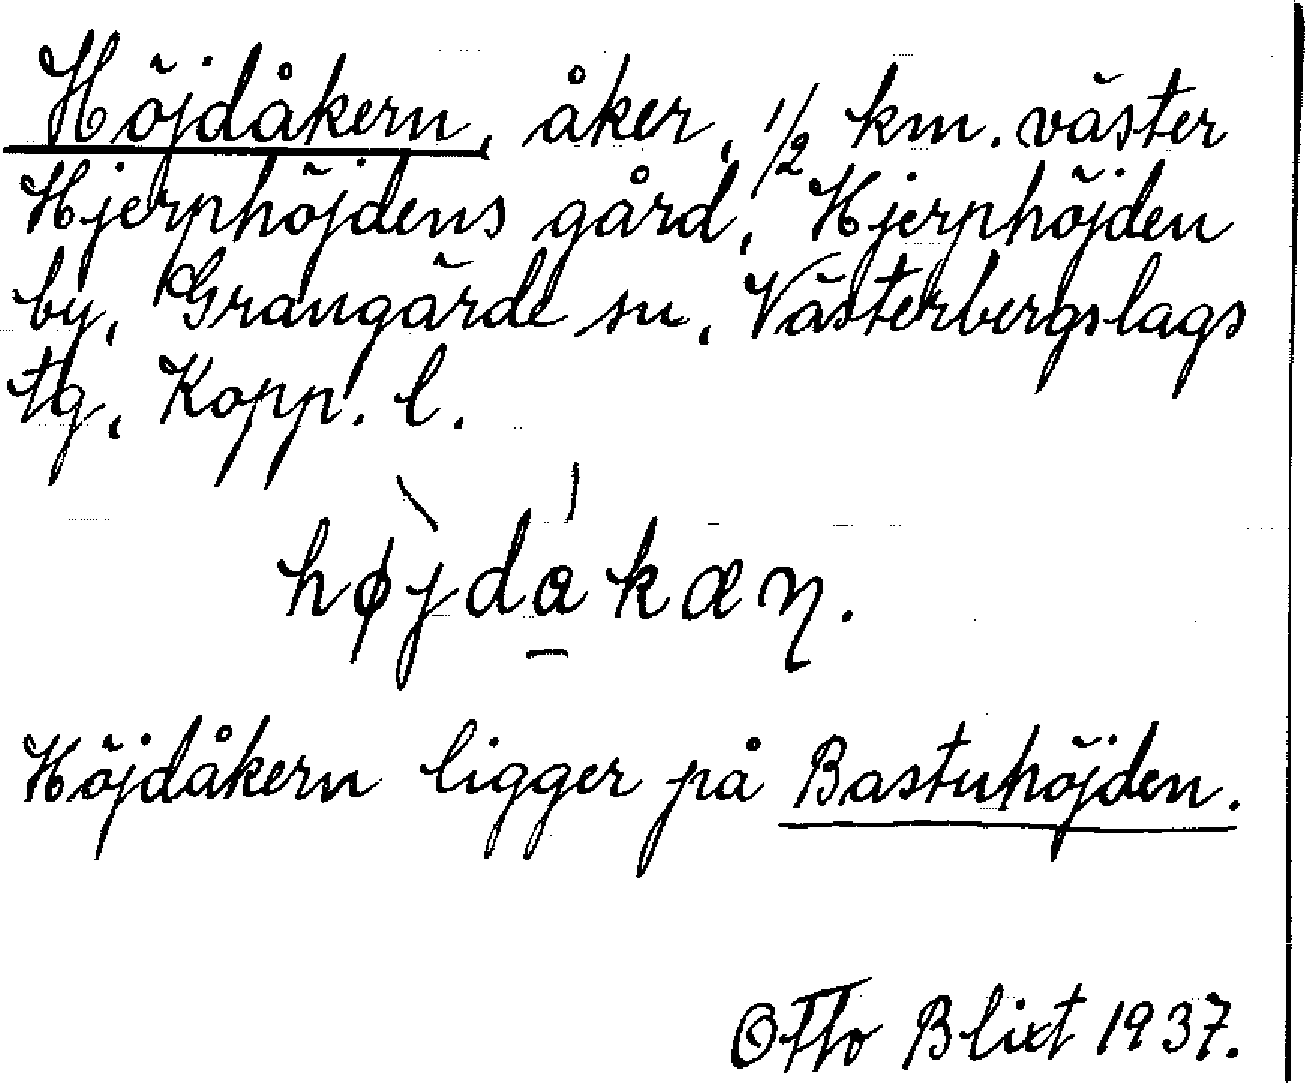 Höjdåkern, åker, 1/2 km. väster
Hjerphöjdens gård, Hjerphöjden
by, Grangärde sn, Västerbergslags
tg, Kopp. l.
hø̀jdá̠kæɳ.
Höjdåkern ligger på Bastuhöjden.
Otto Blixt 1937.